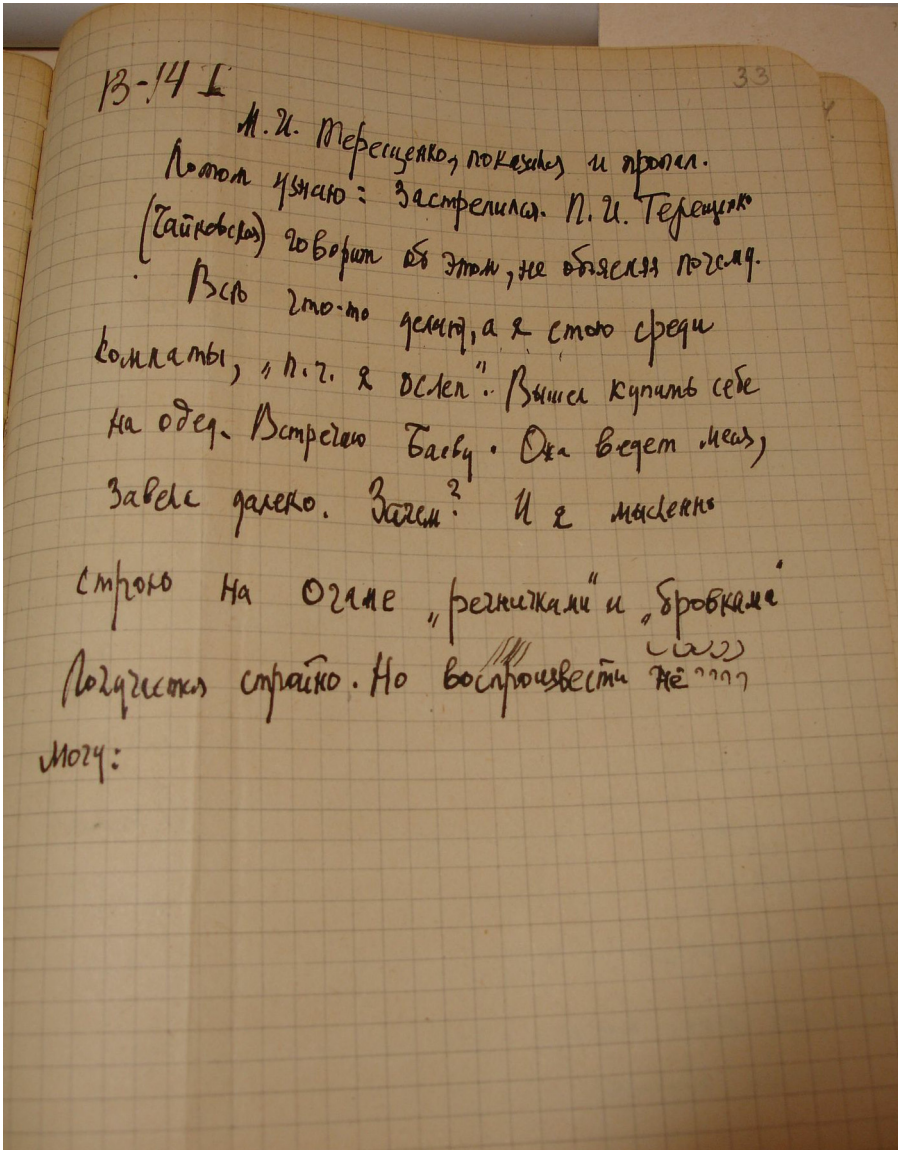 33
13-14 I
М. И. Терещенко, показался и пропал.
Потом узнаю: Застрелился. П. И. Терещенко
(Чайковская) говорит об этом, не объясняя почему.
Все что-то делают, а я стою среди
комнаты, „п.ч. я ослеп". Вышел купить себе
на обед. Встречаю Баеву. Она ведет меня,
завела далеко. Зачем? И я мысленно
строю на „речничками" и „бровками"
Получается стройно. Но воспроизвести не
могу: